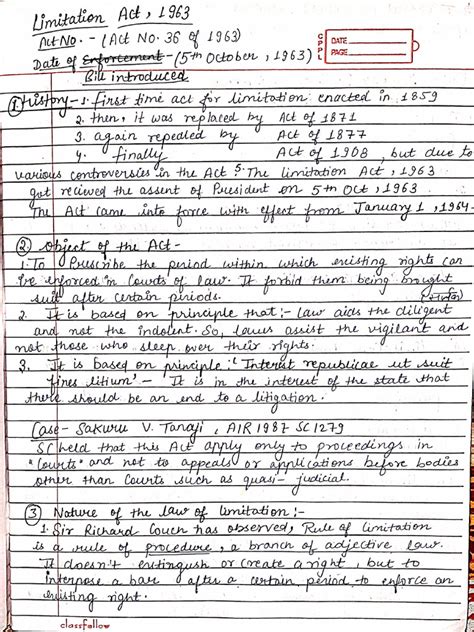 Limitation Act, 1963
Act No. - (Act No. 36 of 1963)
Date of Enfortement - (5th October, 1963)
Bill introduced
CPPL DATE
PAGE
① History - 1. First time act for limitation enacted in 1859
2. then, it was replaced by Act of 1871
3. again repealed by Act of 1877
4. finally Act of 1908, but due to
various controversies in the Act 5. The limitation Act, 1963
got recived the assent of President on 5th Oct, 1963.
The Act came into force with effect from January 1, 1964.
② Object of the Act -
1. To Prescribe the period within which existing rights can
be enforced in Courts of Law. It forbid them being brought
suit after certain periods.
2. It is based on principle that :- Law aids the diligent
and not the indolent. So, laws assist the vigilant and
not those who sleep over their rights.
3. It is based on principle : 'Interest republicae ut suit
fines litium' - It is in the interest of the state that
there should be an end to a litigation.
Case - Sakuru V. Tanaji, AIR 1987 SC 1279
SC held that this Act apply only to proceedings in
"Courts" and not to appeals or applications before bodies
other than Courts such as quasi-judicial.
③ Nature of the law of limitation :-
1. Sir Richard Couch has observed, Rule of limitation
is a rule of procedure, a branch of adjective law.
It doesn't extinguish or create a right, but to
interpose a bar after a certain period to enforce an
existing right.
classfellow